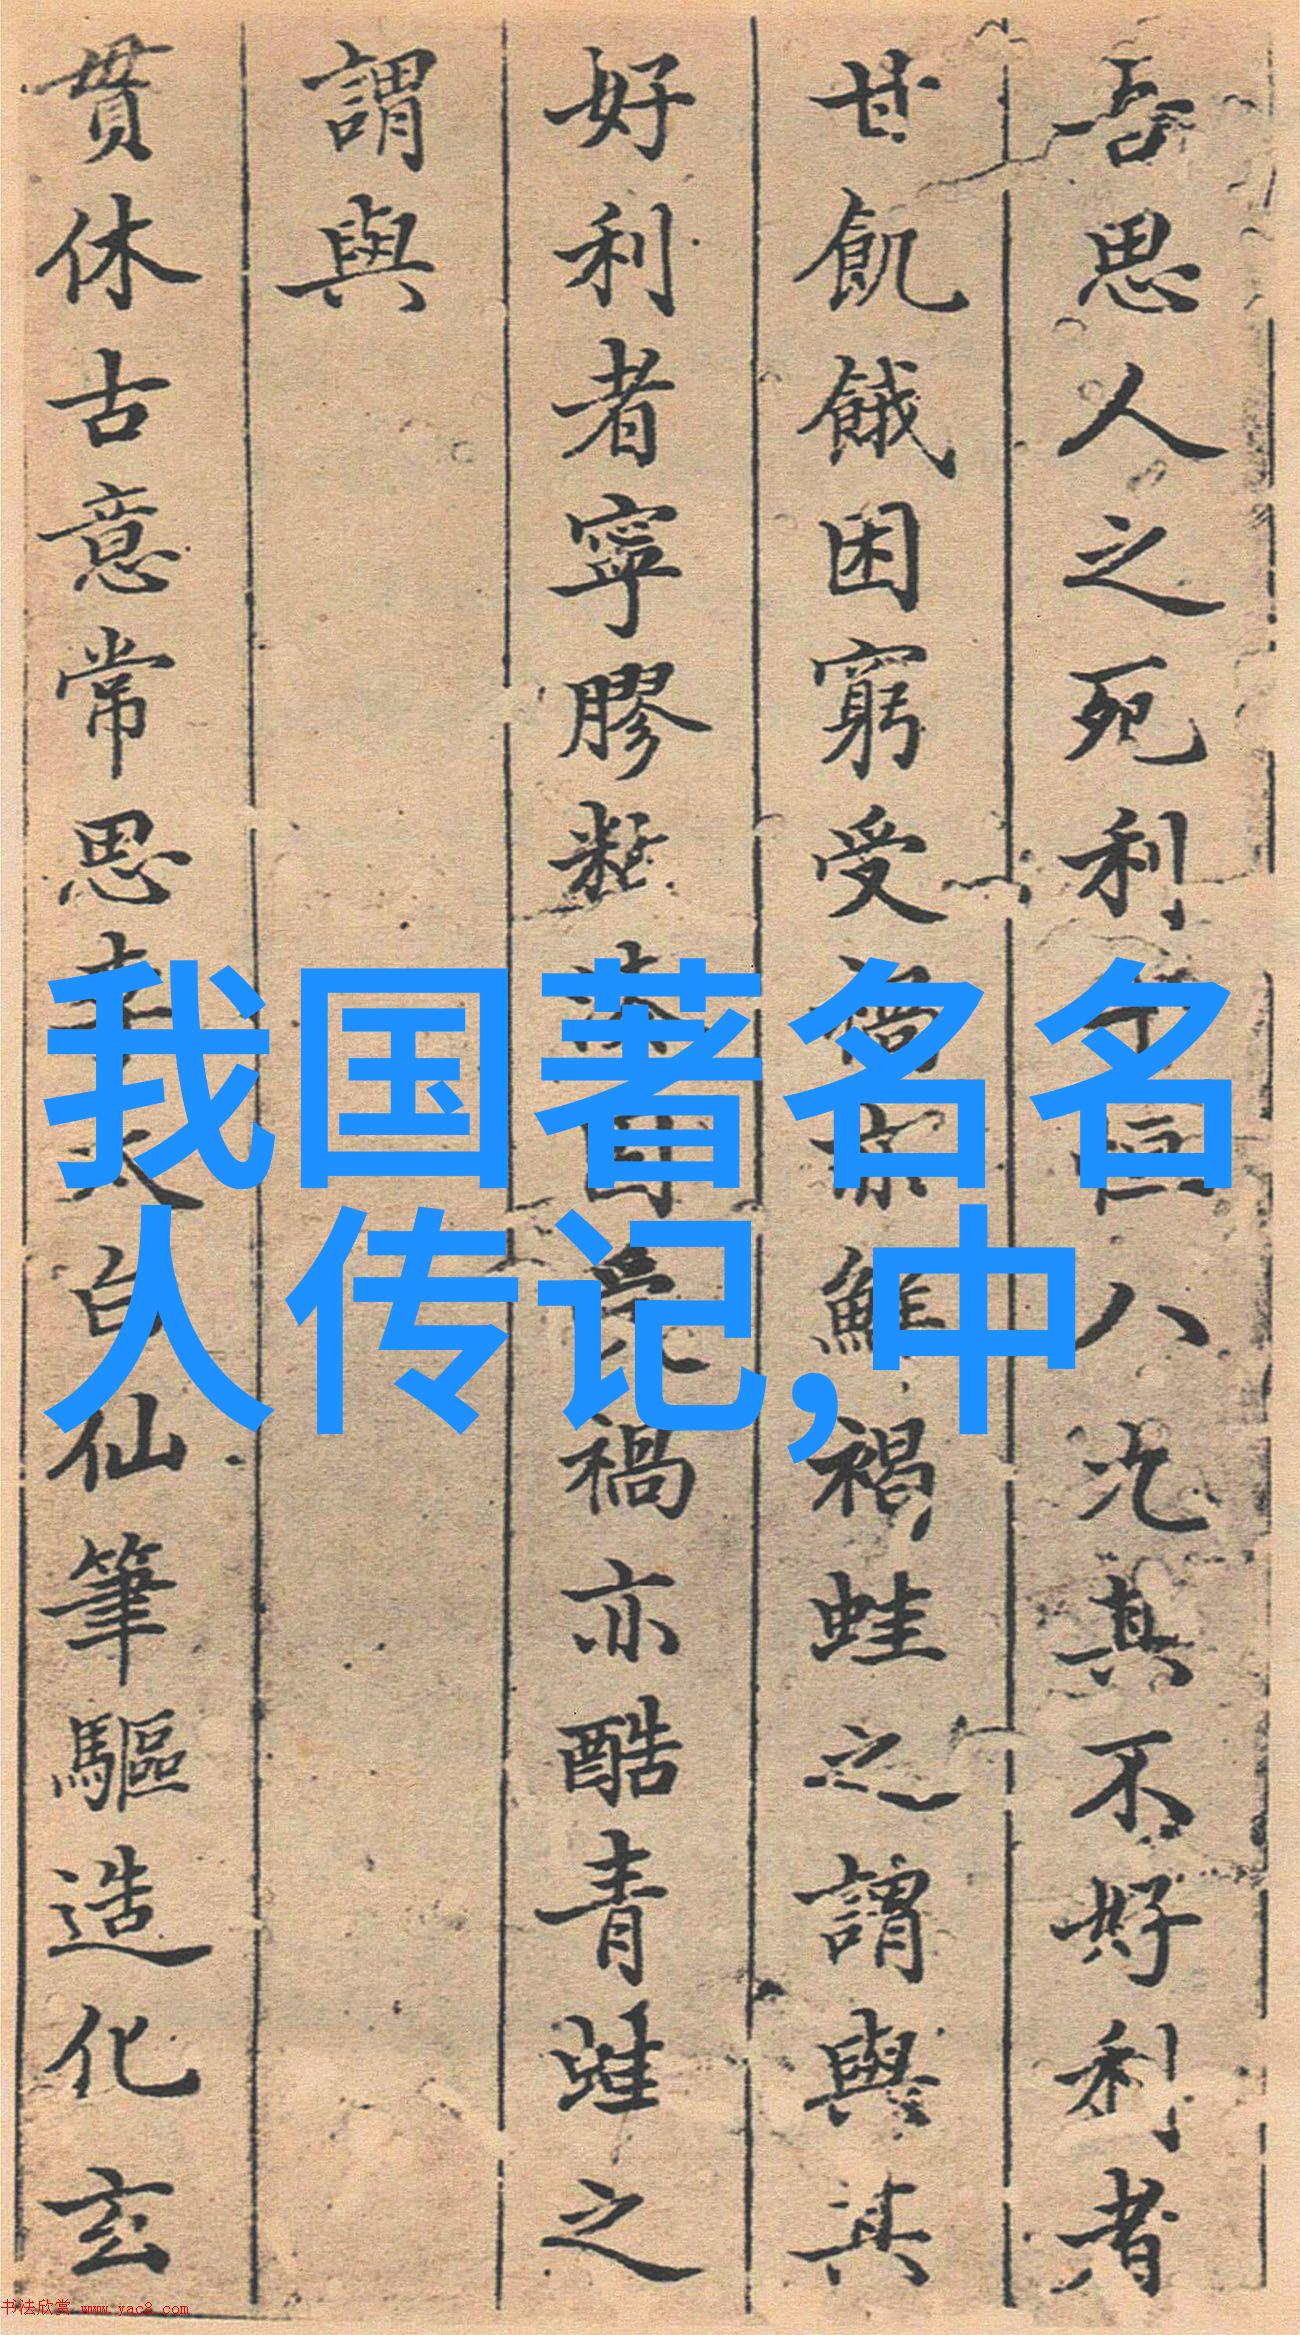 吾思人之死利恒八其不好利者
甘飢餓困窮受亦鮮褐蛙之謂與其
好利者寧膠粘漆固受禍亦酷青蛙之
謂與
貫休古意常思李太白仙筆驅造化玄
我国著名名
人传记,中
书法欣赏 www.yac8.com